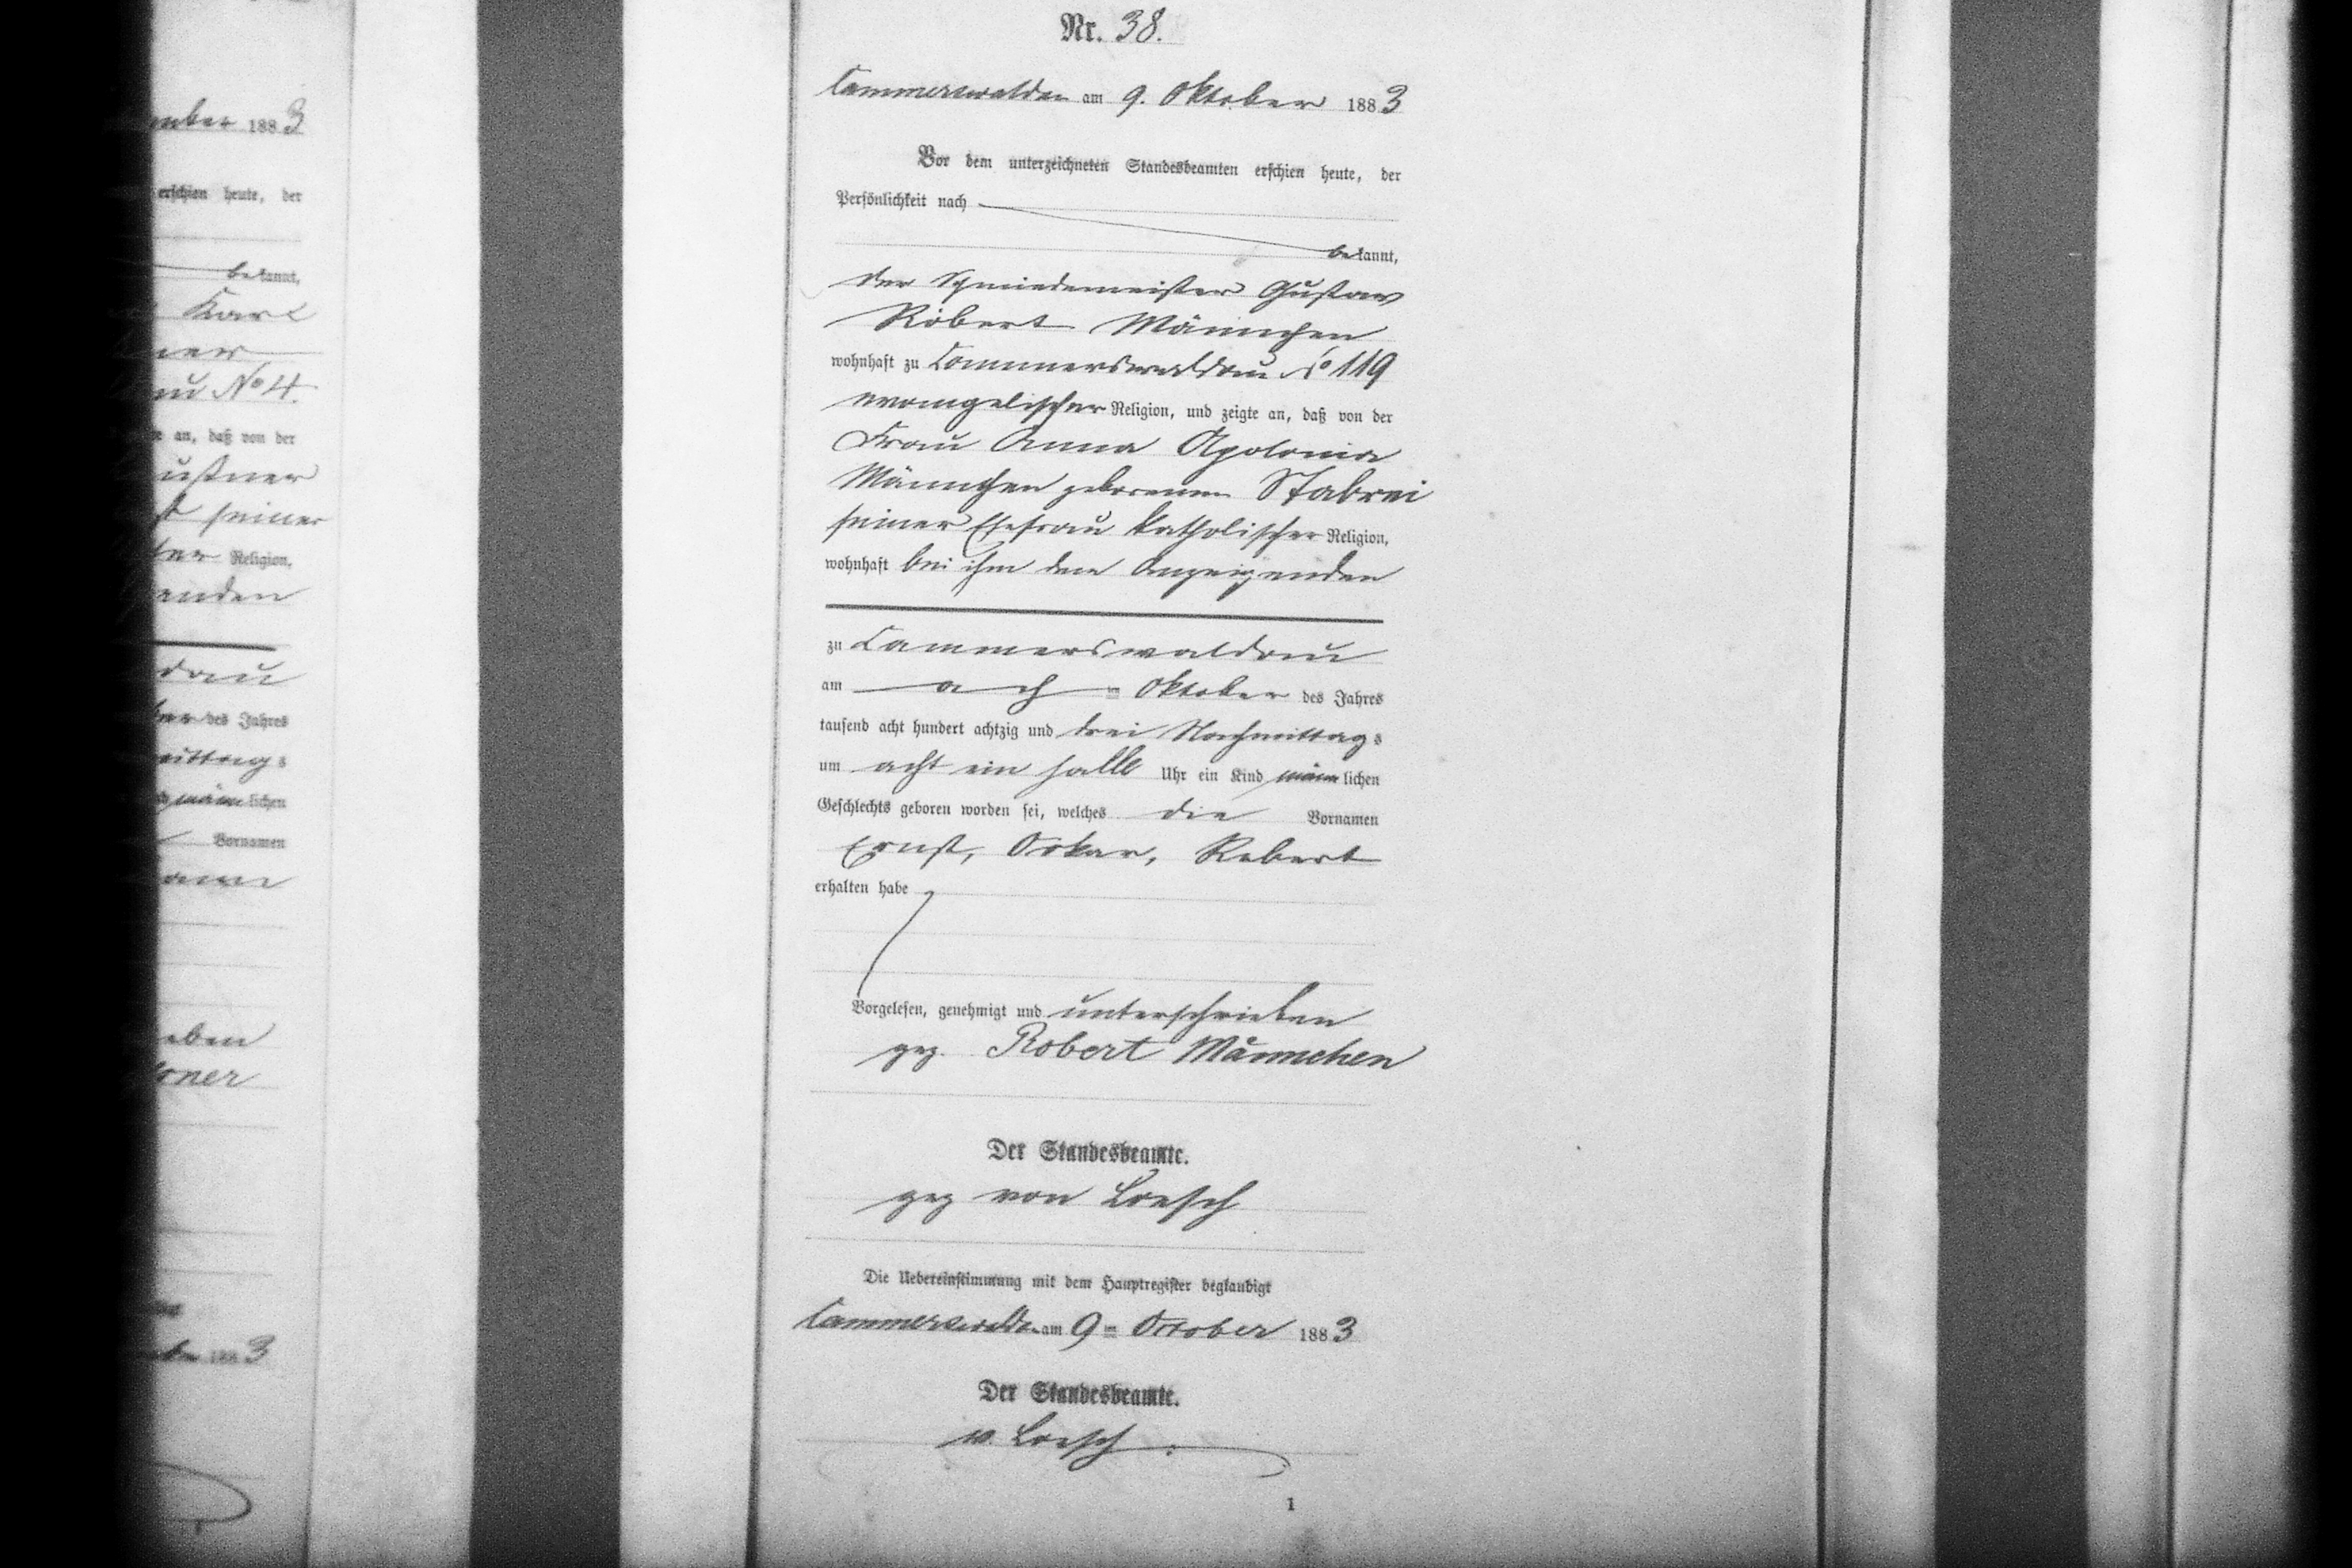 mber 1883
erschien heute, der
bekannt,
Karl
ner
au No 4.
an, daß von der
ustner
seiner
Religion,
enden
dau
des Jahres
mittags
männlichen
Vornamen
eben
tner
1883
Nr. 38.
Cammerswaldau am 9. Oktober 1883
Vor dem unterzeichneten Standesbeamten erschien heute, der
Persönlichkeit nach
bekannt,
der Schmiedemeister Gustav
Robert Männchen
wohnhaft zu Cammerswaldau No 119
evangelischer Religion, und zeigte an, daß von der
Frau Anna Apolonia
Männchen geborenen Stabrei
seiner Ehefrau katholischer Religion,
wohnhaft bei ihm dem Anzeigenden
zu Cammerswaldau
am Oktober des Jahres
tausend acht hundert achtzig und drei Nachmittags
um acht ein halb Uhr ein Kind männlichen
Geschlechts geboren worden sei, welches die Vornamen
Ernst, Oskar, Robert
erhalten habe
Vorgelesen, genehmigt und unterschrieben
gez. Robert Männchen
Der Standesbeamte.
gez von Loesch
Die Uebereinstimmung mit dem Hauptregister beglaubigt
Cammerswaldau am 9ten October 1883
Der Standesbeamte.
v. Loesch.
1